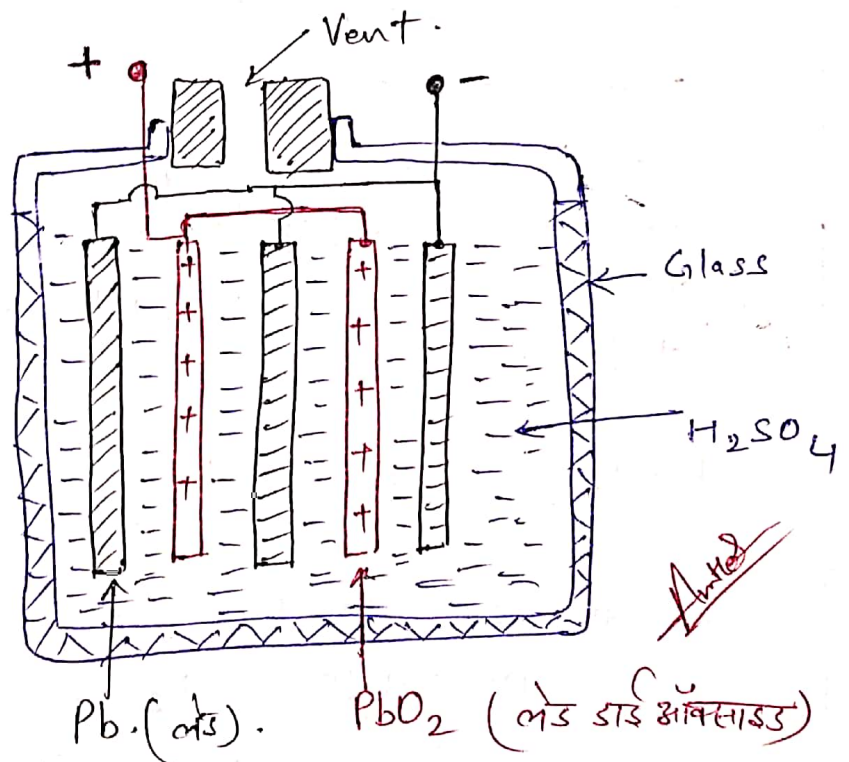 Vent.
+ -
Glass
H₂SO₄
Pb. (लेड).
PbO₂ (लेड डाई ऑक्साइड)